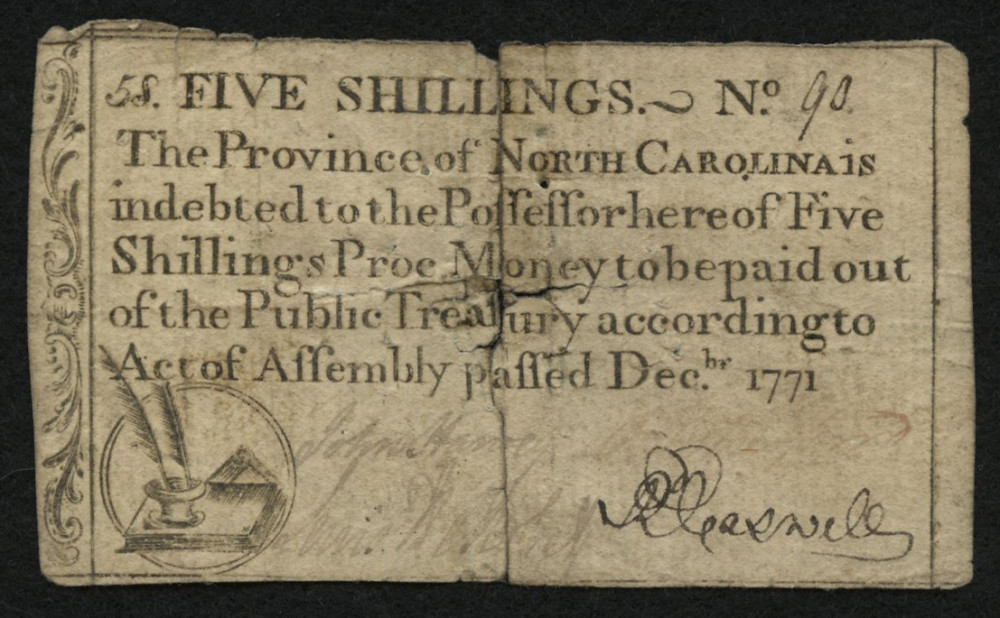 5s. FIVE SHILLINGS. No. 90.
The Province, of NORTH CAROLINA is
indebted to the Poſſeſſor hereof Five
Shillings Proc Money to be paid out
of the Public Treaſury according to
Act of Aſſembly paſſed Dec.br 1771
John
R Caswell